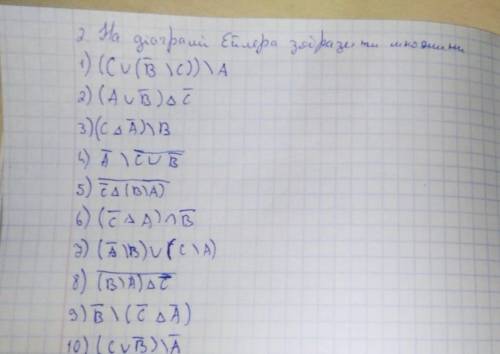 2. На діаграмі Ейлера зобразити множини
1) (C ∪ (B̅ \ C)) \ A
2) (A ∪ B̅) Δ C̅
3) (C Δ A̅) \ B
4) A̅ \ \overline{C ∪ B̅}
5) \overline{C̅ Δ (B \ A)}
6) (C̅ Δ A) ∩ B̅
7) (A̅ \ B) ∪ (C \ A)
8) \overline{(B \ A) Δ C̅}
9) B̅ \ (C̅ Δ A̅)
10) (C ∪ B̅) \ A̅